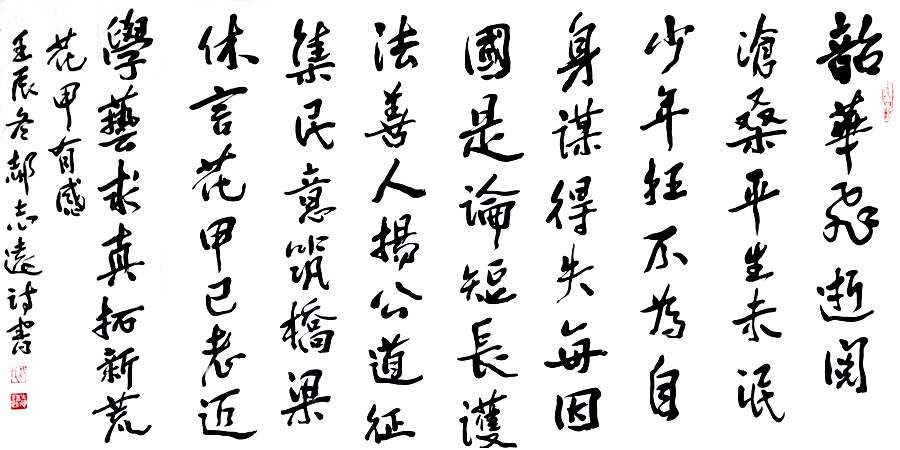 韶華飛逝閱
滄桑平生未泯
少年狂不為自
身謀得失每因
國是論短長護
法善人揚公道征
集民意筑橋梁
休言花甲已老迈
學藝求真拓新荒
花甲有感
壬辰冬郝志遠詩書